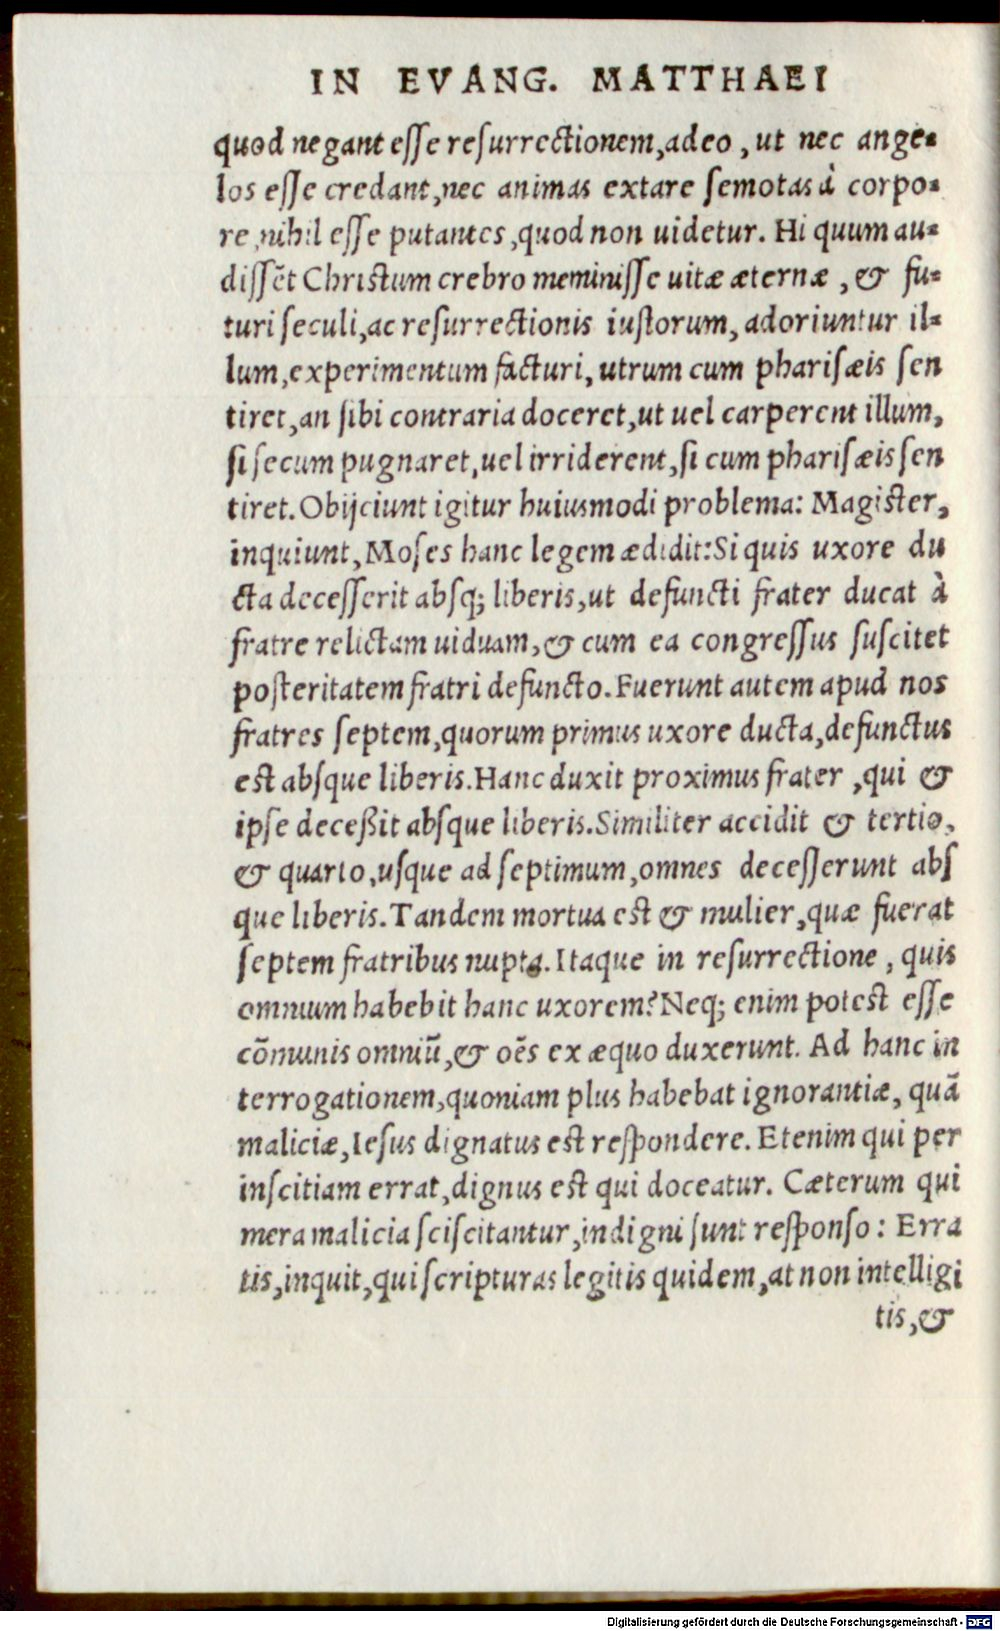 IN EVANG. MATTHAEI
quod negant esse resurrectionem, adeo, ut nec ange-
los esse credant, nec animas extare semotas à corpo-
re, nihil esse putantes, quod non uidetur. Hi quum au-
dissẽt Christum crebro meminisse uitæ æternæ, & fu-
turi seculi, ac resurrectionis iustorum, adoriuntur il-
lum, experimentum facturi, utrum cum pharisæis sen
tiret, an sibi contraria doceret, ut uel carperent illum,
si secum pugnaret, uel irriderent, si cum pharisæis sen
tiret. Obijciunt igitur huiusmodi problema: Magister,
inquiunt, Moses hanc legem ædidit: Si quis uxore du
cta decesserit absq; liberis, ut defuncti frater ducat à
fratre relictam uiduam, & cum ea congressus suscitet
posteritatem fratri defuncto. Fuerunt autem apud nos
fratres septem, quorum primus uxore ducta, defunctus
est absque liberis. Hanc duxit proximus frater, qui &
ipse deceßit absque liberis. Similiter accidit & tertio,
& quarto, usque ad septimum, omnes decesserunt abs
que liberis. Tandem mortua est & mulier, quæ fuerat
septem fratribus nupta. Itaque in resurrectione, quis
omnium habebit hanc uxorem? Neq; enim potest esse
cõmunis omniũ, & oẽs ex æquo duxerunt. Ad hanc in
terrogationem, quoniam plus habebat ignorantiæ, quã
maliciæ, Iesus dignatus est respondere. Etenim qui per
inscitiam errat, dignus est qui doceatur. Cæterum qui
mera malicia sciscitantur, indigni sunt responso: Erra
tis, inquit, qui scripturas legitis quidem, at non intelligi
tis, &
Digitalisierung gefördert durch die Deutsche Forschungsgemeinschaft - DFG